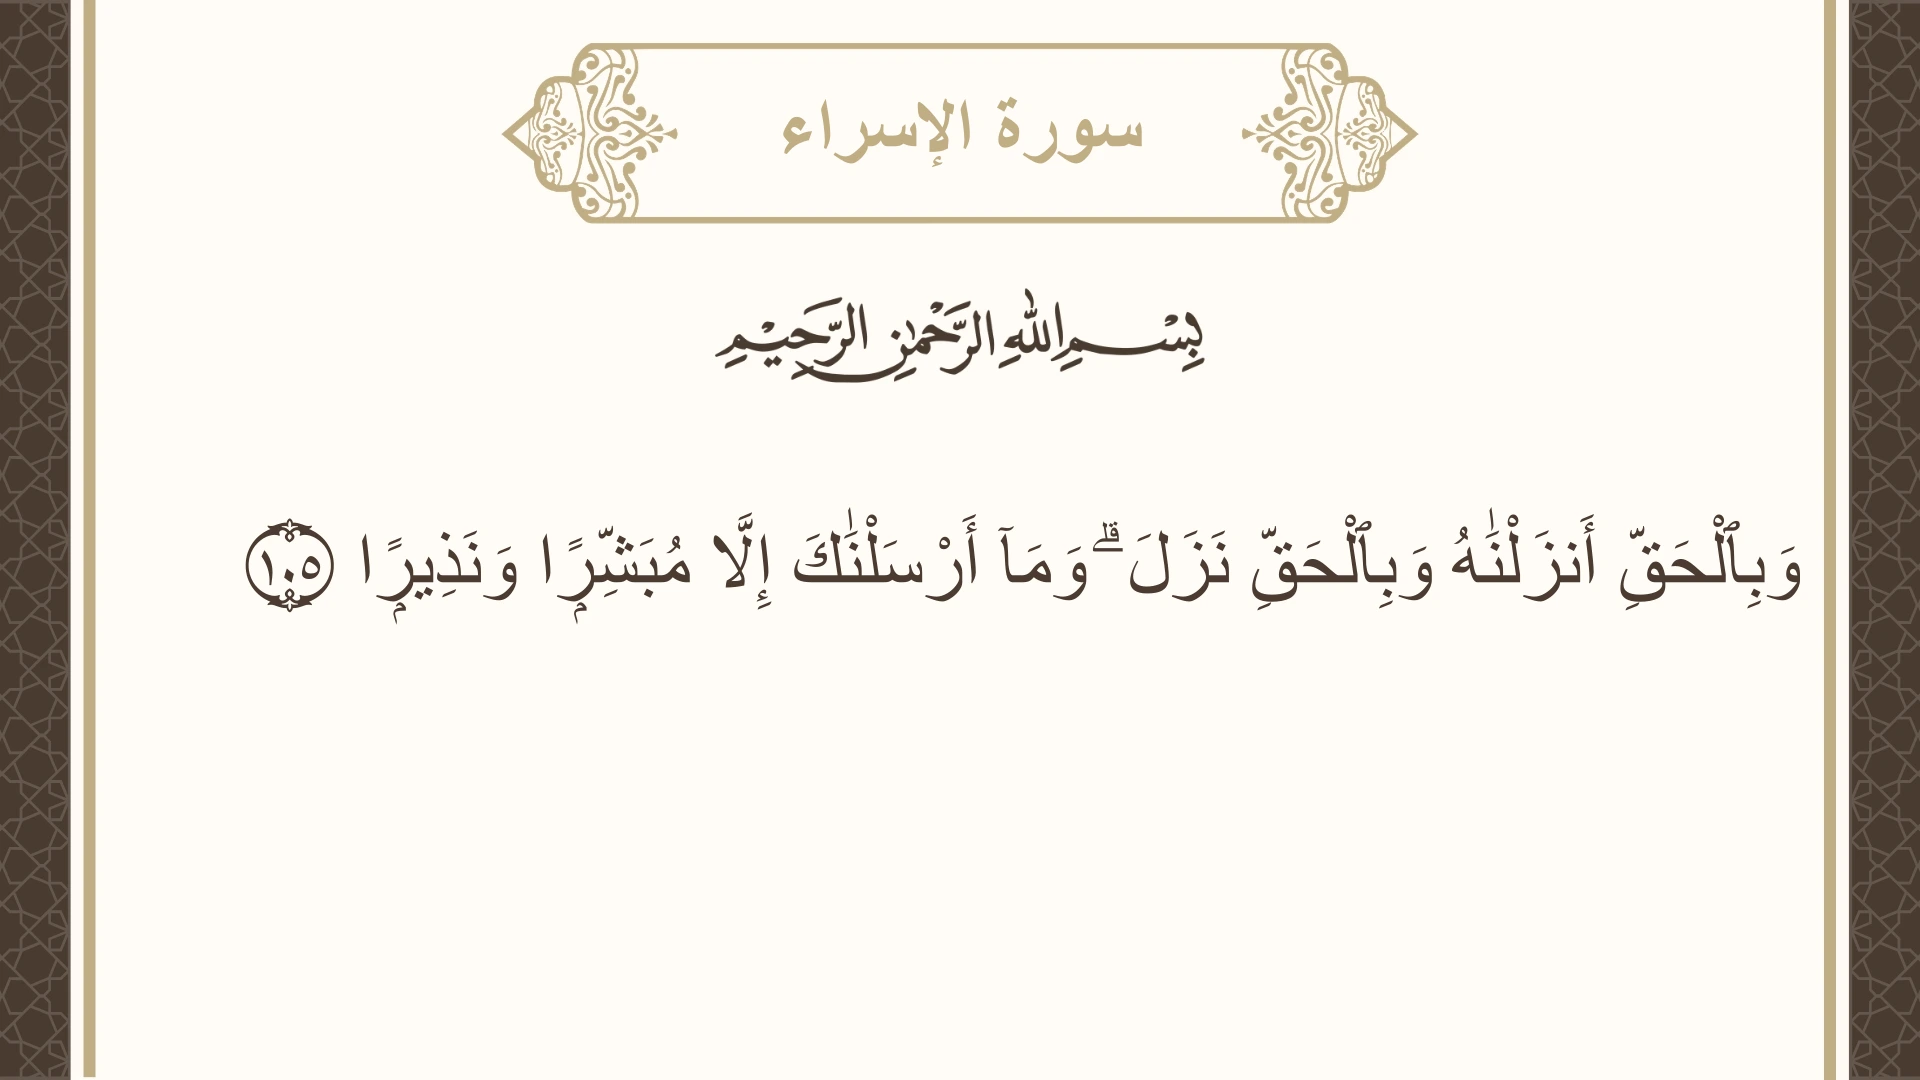 سورة الإسراء
بِسْمِ اللهِ الرَّحْمٰنِ الرَّحِيْمِ
وَبِٱلْحَقِّ أَنزَلْنَٰهُ وَبِٱلْحَقِّ نَزَلَ ۗ وَمَآ أَرْسَلْنَٰكَ إِلَّا مُبَشِّرًۭا وَنَذِيرًۭا ١٠٥